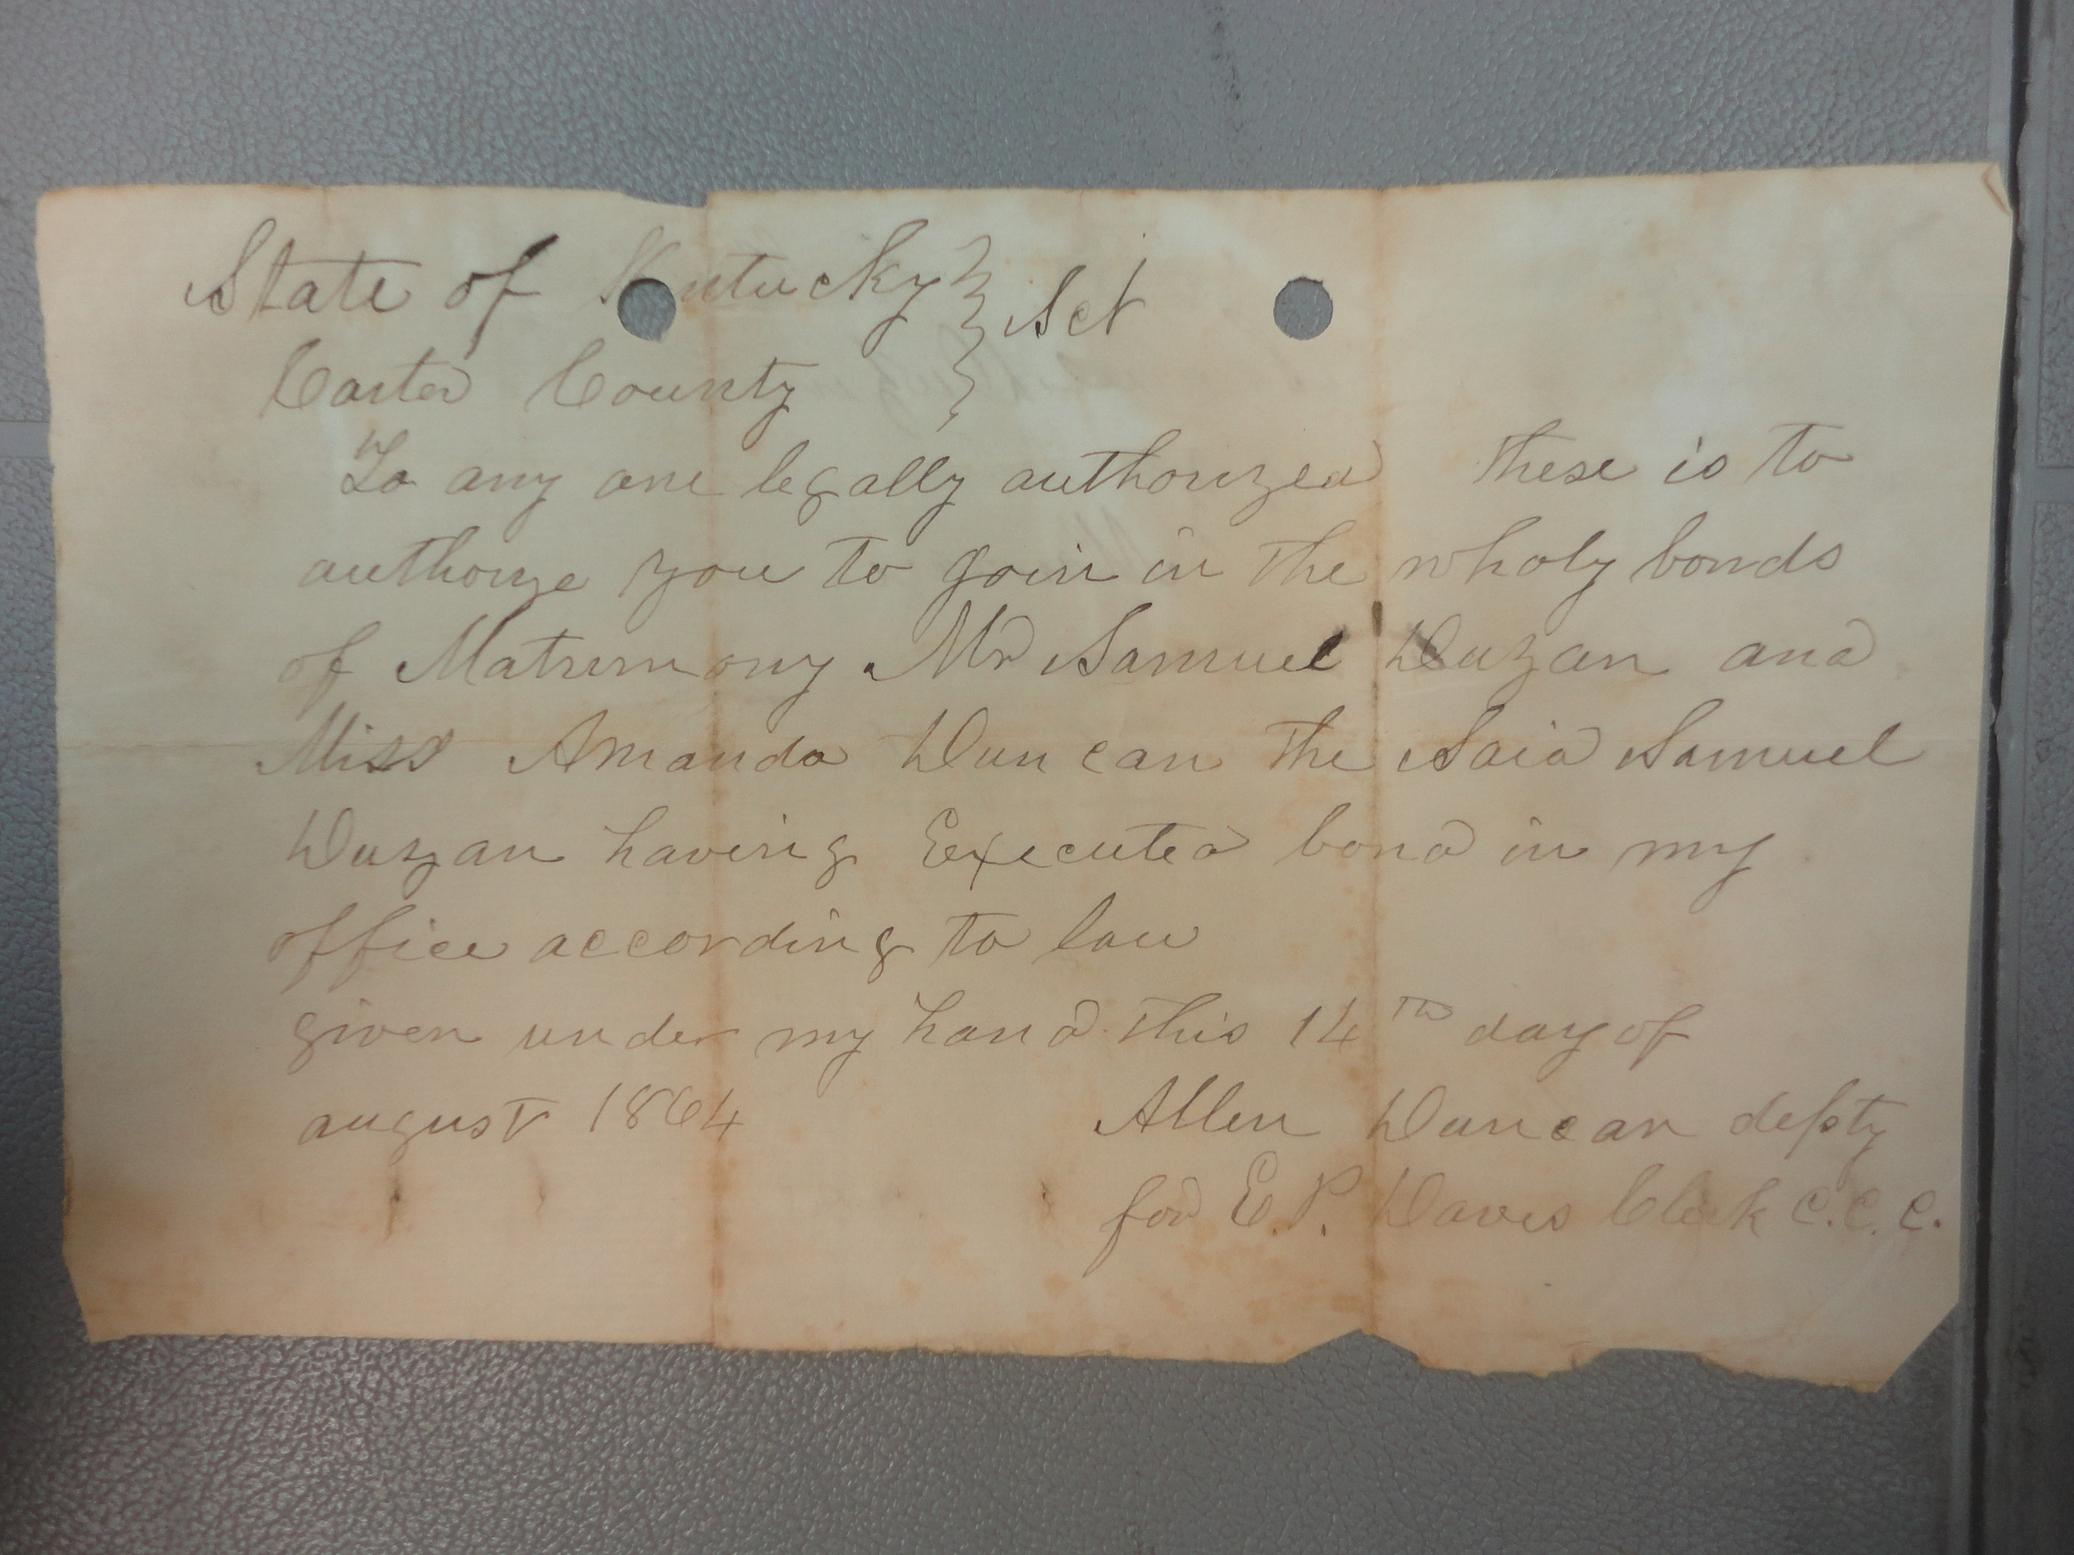 State of Kentucky } Sct
Carter County }
To any one legally authorized these is to
authorize you to goin in the wholy bonds
of Matrimony Mr Samuel Duzan and
Miss Amanda Duncan the Said Samuel
Duzan having Executed bond in my
office according to law
given under my hand this 14th day of
august 1864 Allen Duncan depty
for E. P. Davis Clerk C. C. C.